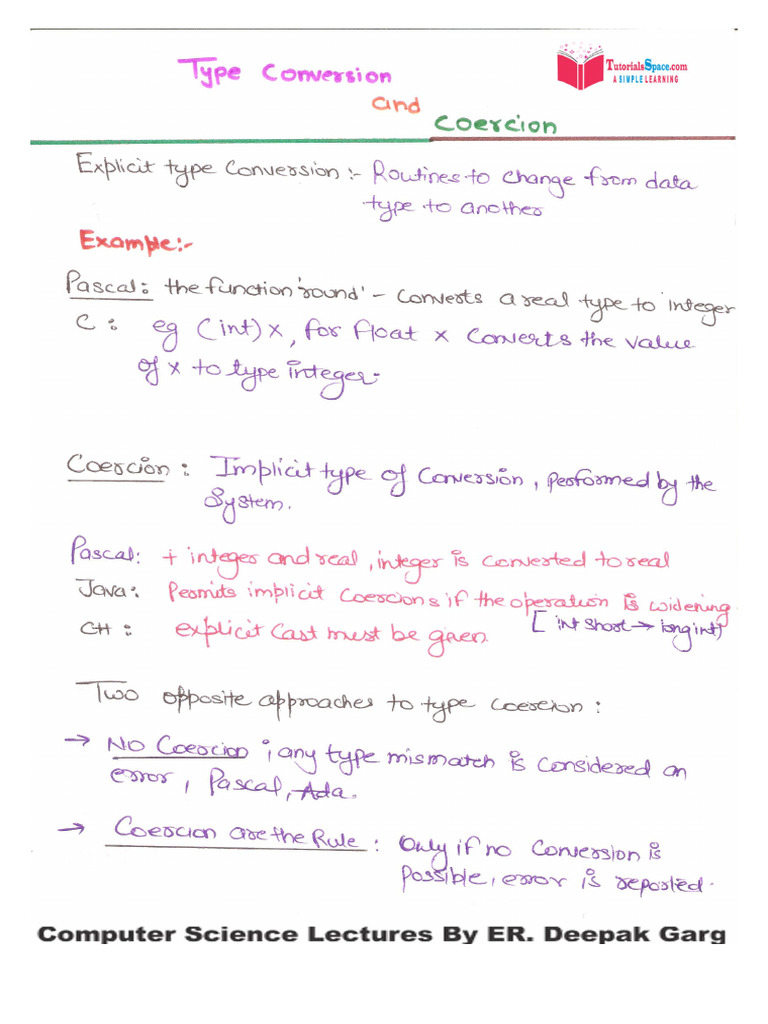 Type Conversion
TutorialsSpace.com
A SIMPLE LEARNING
and
Coercion
Explicit type Conversion :- Routines to change from data
type to another
Example:-
Pascal: the function 'round' - converts a real type to integer
C : eg (int) x, for float x converts the value
of x to type integer.
Coercion : Implicit type of Conversion, performed by the
System.
Pascal: + integer and real, integer is converted to real
Java: Permits implicit coercions if the operation is widening
[int short → long int)
C++ : explicit cast must be given.
Two opposite approaches to type coercion :
→ No Coercion ; any type mismatch is considered an
error, Pascal, Ada.
→ Coercion are the Rule : Only if no conversion is
possible, error is reported.
Computer Science Lectures By ER. Deepak Garg